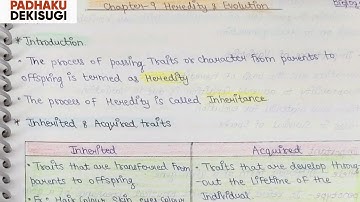 PADHAKU
DEKISUGI
Chapter-9 Heredity & Evolution
* Introduction
• The process of passing Traits or character from parents to
offspring is termed as Heredity
• The process of Heredity is called Inheritance
* Inherited & Acquired traits
Inherited
• Traits that are transferred from
parents to offspring
Ex:- Hair Colour, Skin, eyes Colour
Acquired
• Traits that are develop throug-
out the lifetime of the
Individual